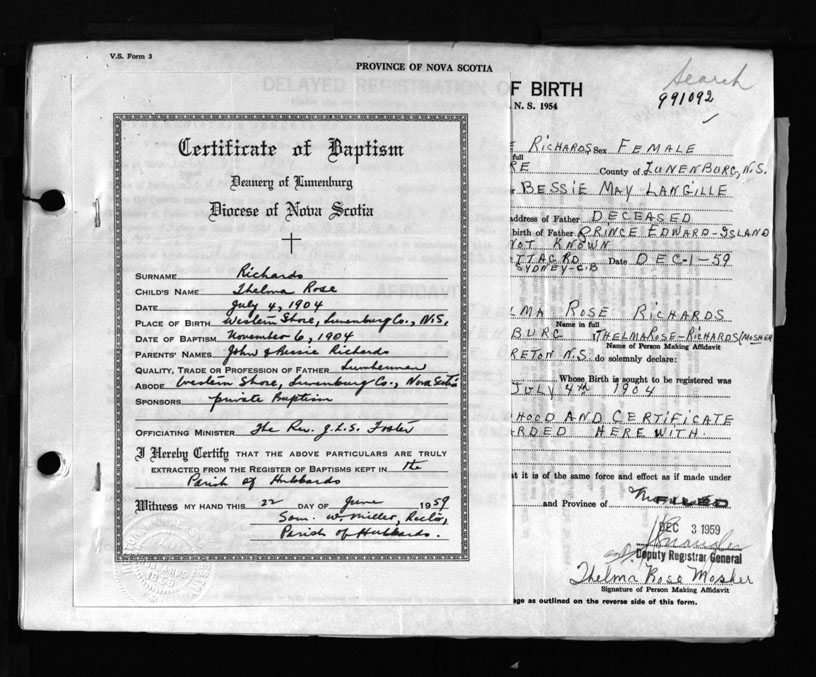 V.S. Form 3
PROVINCE OF NOVA SCOTIA
Search
991092
DELAYED REGISTRATION OF BIRTH
N. S. 1954
Certificate of Baptism
Deanery of Lunenburg
Diocese of Nova Scotia
SURNAME Richards
CHILD'S NAME Thelma Rose
DATE July 4, 1904
PLACE OF BIRTH Western Shore, Lunenburg Co., N.S.
DATE OF BAPTISM November 6, 1904
PARENTS' NAMES John & Bessie Richards
QUALITY, TRADE OR PROFESSION OF FATHER Lumberman
ABODE Western Shore, Lunenburg Co., Nova Scotia
SPONSORS private Baptism
OFFICIATING MINISTER The Rev. J.L.S. Foster
I Hereby Certify THAT THE ABOVE PARTICULARS ARE TRULY
EXTRACTED FROM THE REGISTER OF BAPTISMS KEPT IN the
Parish of Hubbards
Witness MY HAND THIS 22 DAY OF June 1959
Sam. W. Miller, Rector,
Parish of Hubbards.
RICHARDS Sex FEMALE
full
RE County of LUNENBURG, N.S.
BESSIE MAY LANGILLE
address of Father DECEASED
birth of Father PRINCE EDWARD-ISLAND
NOT KNOWN
TTAC RD Date DEC-1-59
SYDNEY-C.B
LMA ROSE RICHARDS
Name in full
BURG THELMA ROSE-RICHARDS (MOSHER
Name of Person Making Affidavit
BRETON N.S. do solemnly declare:
Whose Birth is sought to be registered was
JULY 4th 1904
HOOD AND CERTIFICATE
RDED HERE WITH.
that it is of the same force and effect as if made under
and Province of
FILED
DEC 3 1959
Deputy Registrar General
Thelma Rose Mosher
Signature of Person Making Affidavit
ge as outlined on the reverse side of this form.